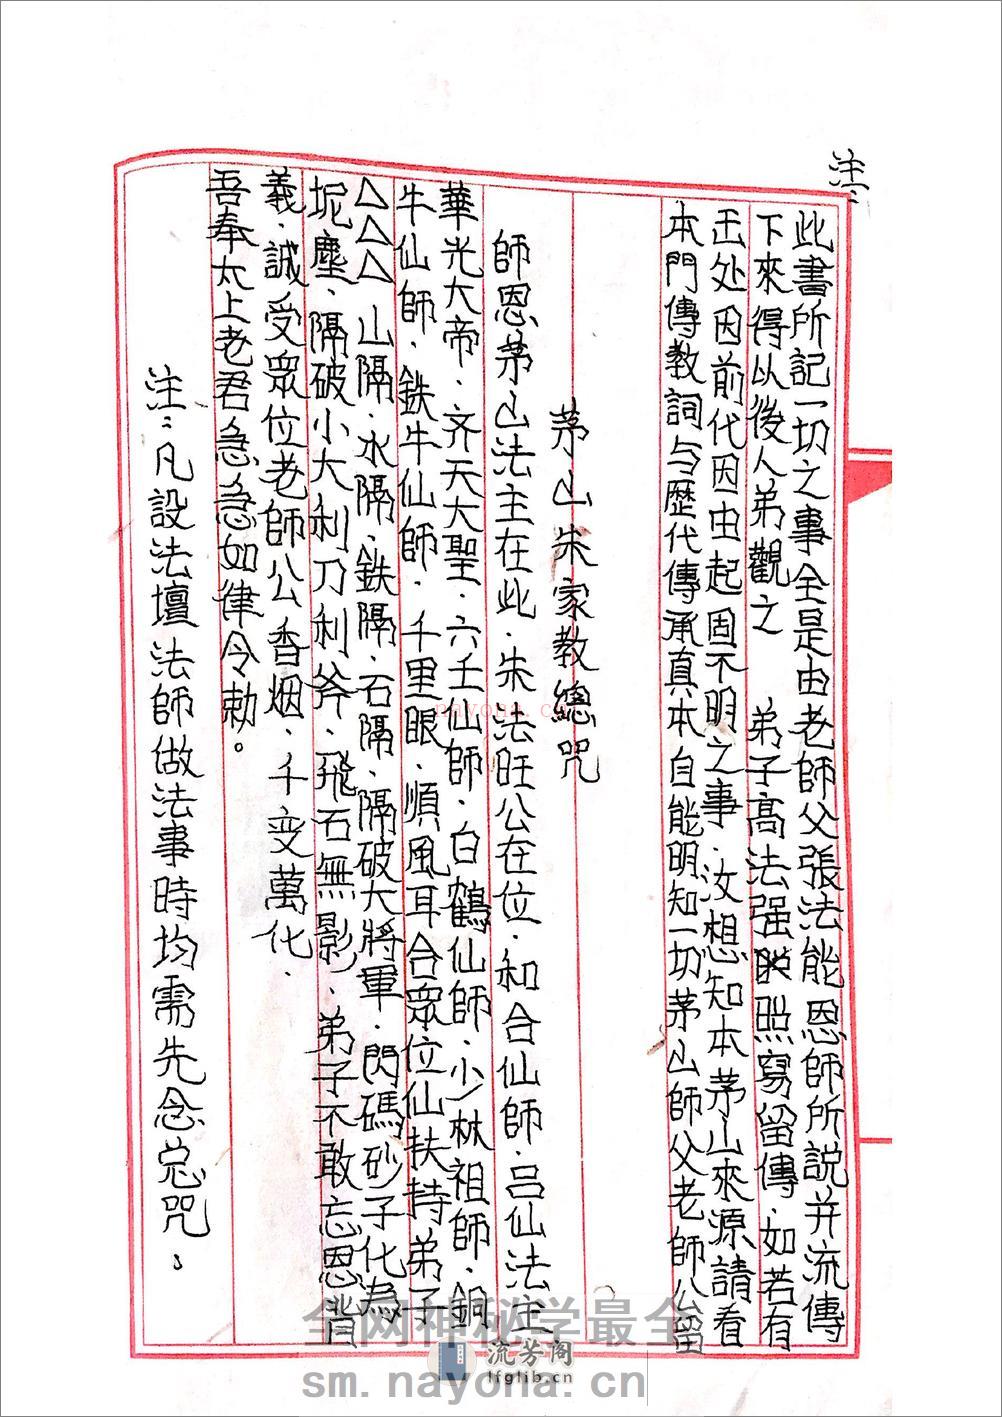 注:
此書所記一切之事全是由老師父張法能恩師所説并流傳
下來得以後人弟觀之 弟子高法强照寫留傳.如若有
不明之处因前代因由起因不明之事.汝想知本茅山來源請看
本門傳教詞与歷代傳承真本自能明知一切茅山師父老師公留
茅山朱家教總咒
師恩茅山法主在此.朱法旺公在位.和合仙師.吕仙法主
華光大帝.齐天大聖.六壬仙師.白鶴仙師.少林祖師.銅
牛仙師.鉄牛仙師.千里眼.順風耳合衆位仙扶持.弟子
△△△山隔.水隔.鉄隔.石隔.隔破大將軍.閃碼砂子化為
坭塵.隔破小大利刀利斧.飛石無影.弟子不敢忘恩背
義.誠受眾位老師公香烟.千变萬化.
吾奉太上老君急急如律令勅。
注:凡設法壇法師做法事時均需先念总咒.
nayona.cn
全网神秘学最全
流芳阁
lfglib.cn
sm.nayona.cn